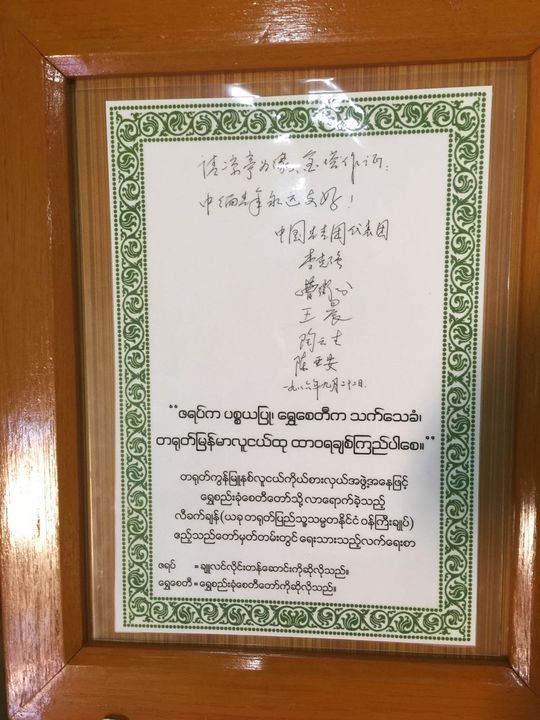 请凉亭为 金塔作证:
中缅青年永远友好!
中国共青团代表团
李克强
王晨
一九八六年九月二十二日.
“ဇရပ်က ပစ္စယပြု၊ ရွှေစေတီက သက်သေခံ၊
တရုတ်မြန်မာလူငယ်ထု ထာဝရချစ်ကြည်ပါစေ။”
တရုတ်ကွန်မြူနစ်လူငယ်ကိုယ်စားလှယ်အဖွဲ့အနေဖြင့်
ရွှေစည်းခုံစေတီတော်သို့ လာရောက်ခဲ့သည့်
လီခက်ချန်(ယခုတရုတ်ပြည်သူ့သမ္မတနိုင်ငံ ဝန်ကြီးချုပ်)
ဧည့်သည်တော်မှတ်တမ်းတွင် ရေးသားသည့်လက်ရေးစာ
ဇရပ် = ချူလင်လိုင်းတန်ဆောင်းကိုဆိုလိုသည်။
ရွှေစေတီ = ရွှေစည်းခုံစေတီတော်ကိုဆိုလိုသည်။